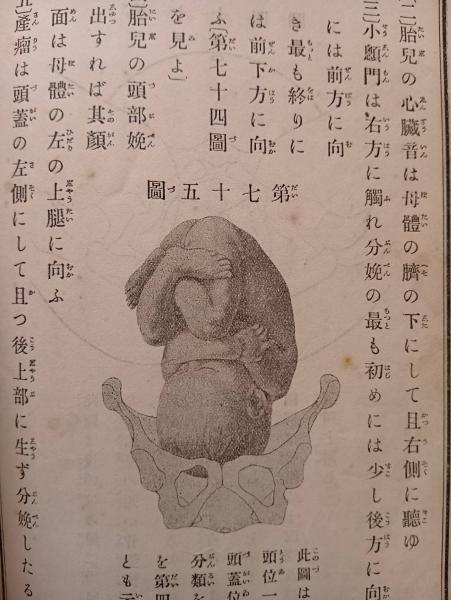 (二)胎兒の心臟音は母體の臍の下にして且右側に聽ゆ
(三)小顖門は右方に觸れ分娩の最も初めには少し後方に向
には前方に向
き最も終りに
は前下方に向
ふ〔第七十四圖
を見よ〕
胎兒の頭部娩
出すれば其顏
面は母體の左の上腿に向ふ
五)產瘤は頭蓋の左側にして且つ後上部に生ず分娩したる
第七十五圖
此圖は
頭位一
頭蓋位
分類を
を第四
とも云